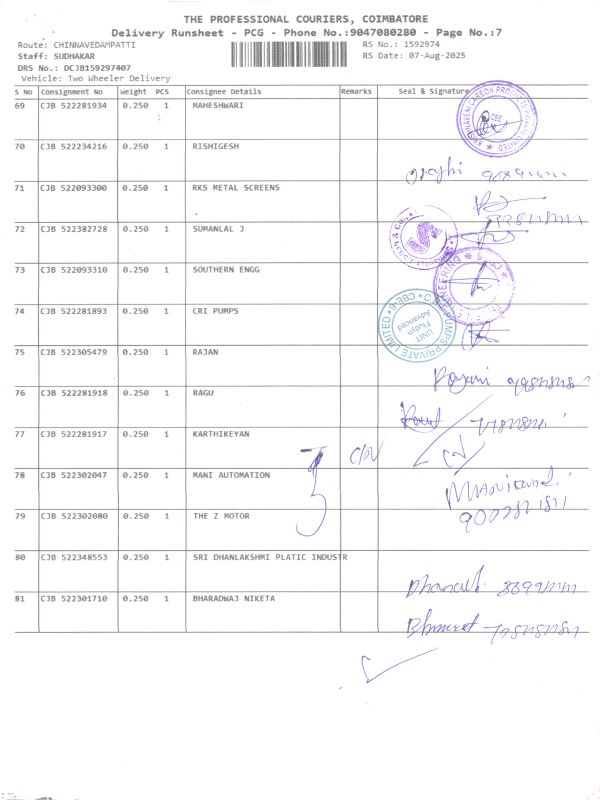 THE PROFESSIONAL COURIERS, COIMBATORE
Delivery Runsheet - PCG - Phone No.:9047080280 - Page No.:7
Route: CHINNAVEDAMPATTI RS No.: 1592974
Staff: SUDHAKAR RS Date: 07-Aug-2025
DRS No.: DCJB159297407
Vehicle: Two Wheeler Delivery
S NO Consignment No Weight PCS Consignee Details Remarks Seal & Signature
69 CJB 522281934 0.250 1 MAHESHWARI
70 CJB 522234216 0.250 1 RISHIGESH
71 CJB 522093300 0.250 1 RKS METAL SCREENS
72 CJB 522382728 0.250 1 SUMANLAL J
73 CJB 522093310 0.250 1 SOUTHERN ENGG
74 CJB 522281893 0.250 1 CRI PUMPS
UNIT
Fludyn
Advanced
75 CJB 522305479 0.250 1 RAJAN
76 CJB 522281918 0.250 1 RAGU
77 CJB 522281917 0.250 1 KARTHIKEYAN
78 CJB 522302047 0.250 1 MANI AUTOMATION
79 CJB 522302080 0.250 1 THE Z MOTOR
80 CJB 522348553 0.250 1 SRI DHANLAKSHMI PLATIC INDUSTR
81 CJB 522301710 0.250 1 BHARADWAJ NIKETA